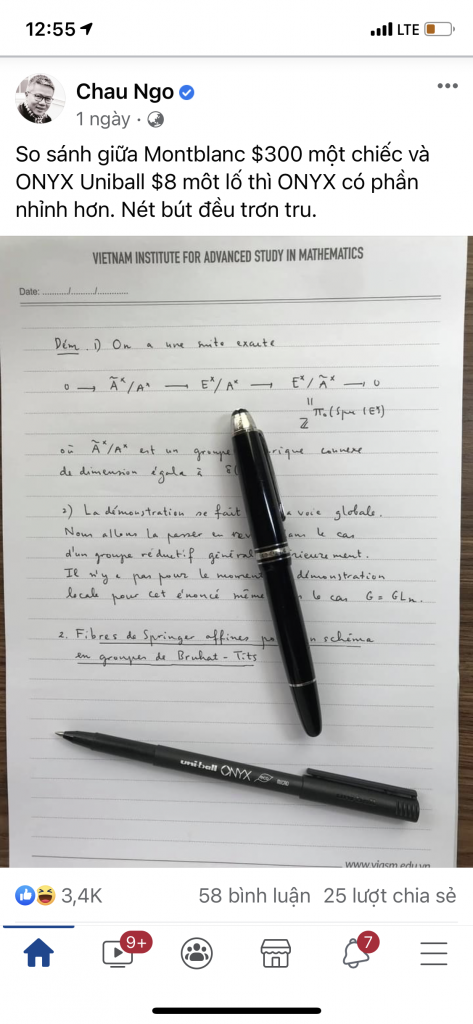 12:55
LTE
Chau Ngo
1 ngày
So sánh giữa Montblanc $300 một chiếc và
ONYX Uniball $8 môt lố thì ONYX có phần
nhỉnh hơn. Nét bút đều trơn tru.
VIETNAM INSTITUTE FOR ADVANCED STUDY IN MATHEMATICS
Date: ........../........../............
Dém. 1) On a une suite exacte
0 → Ã^x/A^x → E^x/A^x → E^x/Ã^x → 0
ℤ π₀(
où Ã^x/A^x est un groupe rique connexe
de dimension égale à δ(
2) La démonstration se fait voie globale.
Nous allons la passer en rev ans le cas
d'un groupe réductif général rieurement.
Il n'y a pas pour le moment démonstration
locale pour cet énoncé même le cas G = GLn.
2. Fibres de Springer affines po n schéma
en groupes de Bruhat - Tits
uni-ball ONYX
www.viasm.edu.vn
3,4K 58 bình luận 25 lượt chia sẻ
9+ 7